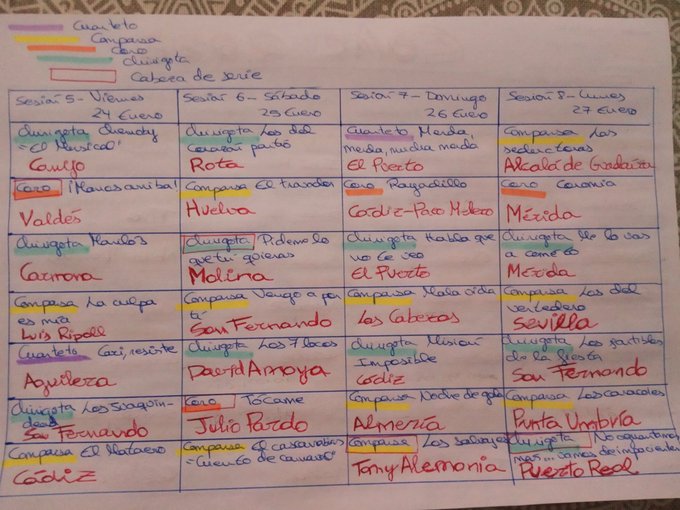 Cuarteto
Comparsa
Coro
Chirigota
Cabeza de serie
Sesión 5 - Viernes
24 Enero
Sesión 6 - Sábado
25 Enero
Sesión 7 - Domingo
26 Enero
Sesión 8 - Lunes
27 Enero
Chirigota
"El Musical"
Canijo
Chirigota Los del
corazón partío
Rota
Cuarteto Merda,
merda, mucha merda
El Puerto
Comparsa Las
seductoras
Alcalá de Guadaíra
Coro ¡Manos arriba!
Valdés
Comparsa El trovador
Huelva
Coro
Cádiz-Paco Melero
Coro
Mérida
Chirigota
Carmona
Chirigota Pídeme lo
que tú quieras
Molina
Chirigota Habla que
no te veo
El Puerto
Chirigota Me lo vas
a comé tó
Mérida
Comparsa La culpa
es mía
Luis Ripoll
Comparsa Vengo a por
tí
San Fernando
Comparsa Mala vida
Las Cabezas
Comparsa Los del
vertedero
Sevilla
Cuarteto Caxi, resiste
Aguilera
Chirigota Los 7 locos
David Amaya
Chirigota Misión
Imposible
Cádiz
Chirigota Los
de la fiesta
San Fernando
Chirigota Los
San Fernando
Coro Tócame
Julio Pardo
Comparsa Noche de gala
Almería
Comparsa Los caracoles
Punta Umbría
Comparsa El Mataero
Cádiz
Comparsa El cascanabos
"Cuento de carnaval"
Comparsa Los salvajes
Tony Alemania
Chirigota No aguantamos
mas... vamos de
Puerto Real